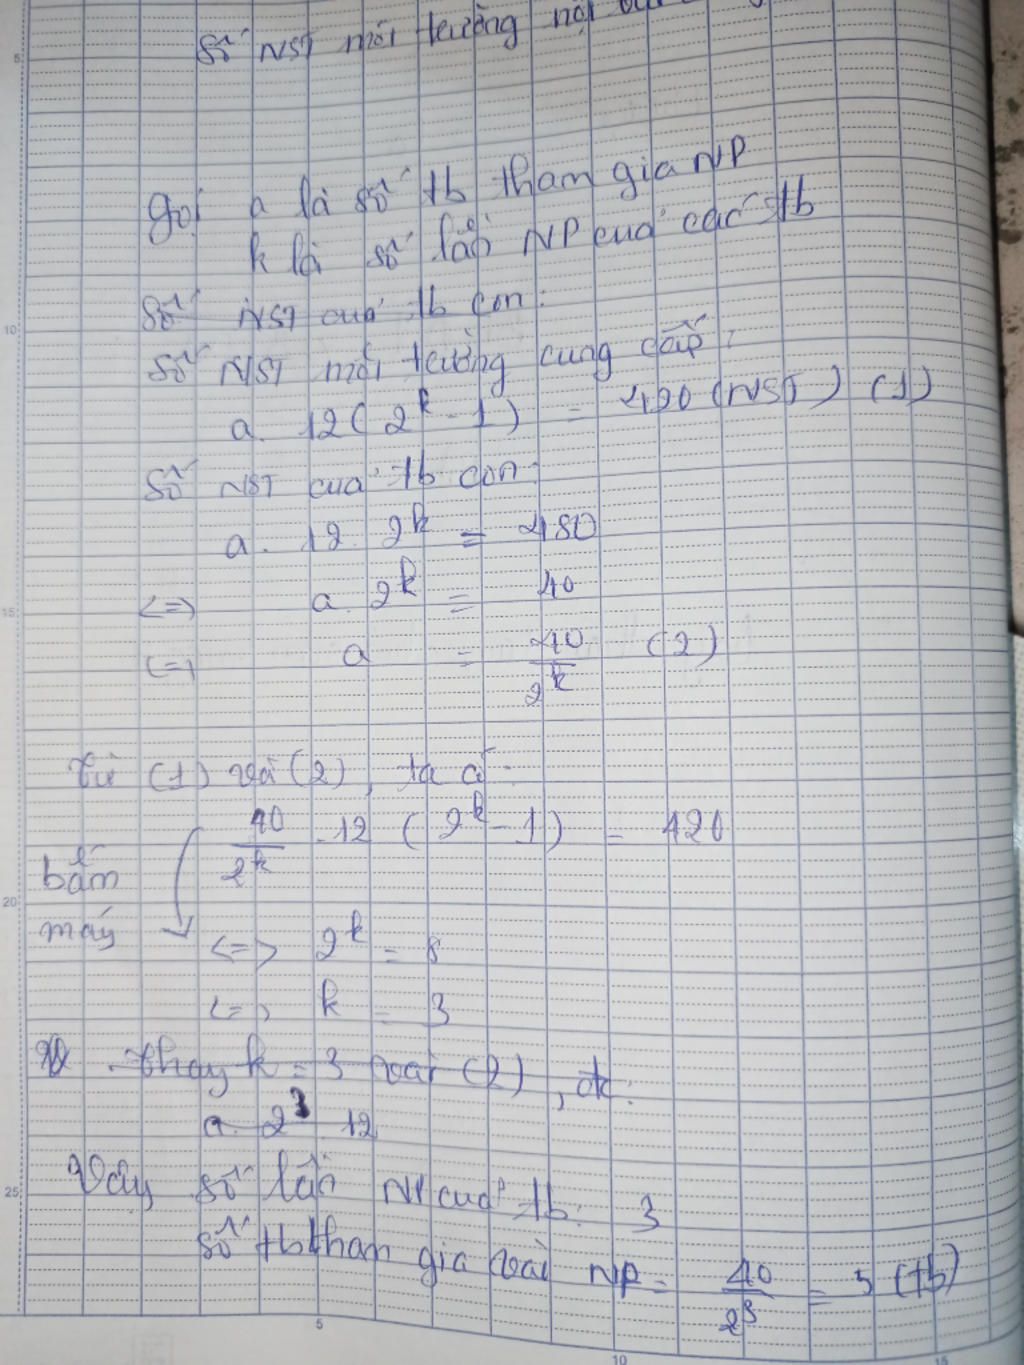 Số NST môi trường nội
Gọi a là số tb tham gia NP
k là số lần NP của các tb
Số NST của tb con:
Số NST môi trường cung cấp:
a. 12 ( 2^k - 1 ) = 420 (NST) (1)
Số NST của tb con:
a. 12. 2^k = 480
<=> a. 2^k = 40
<=> a = 40/2^k (2)
Từ (1) và (2), ta có:
40/2^k . 12 ( 2^k - 1 ) = 420
bấm
máy
<=> 2^k = 8
<=> k = 3
thay k = 3 vào (2), đk:
a. 2^3. 12
Vậy số lần NP của tb: 3
Số tb tham gia vào NP = 40/2^3 = 5 (tb)
5
10
15
20
25
5
10
15